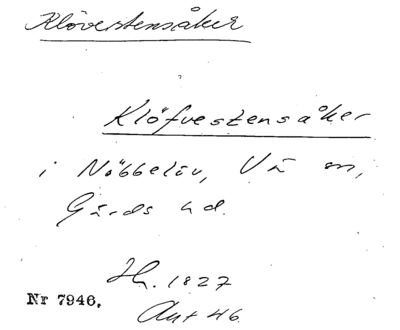 Klövestensåker
Klöfvestensåker
i Nöbbelöv, Vä sn,
Gärds hd.
Hh. 1827
Akt 46
Nr 7946.